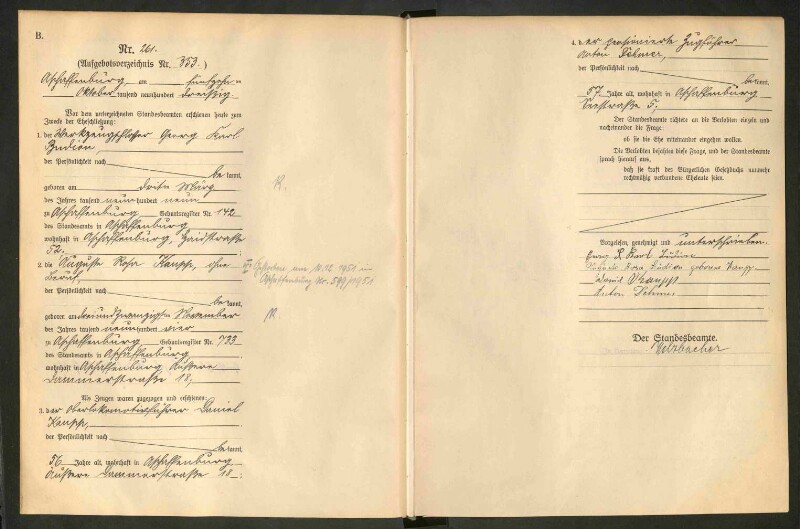 B.
Nr. 261.
(Aufgebotsverzeichnis Nr. 353.)
Aschaffenburg, am fünfzehnten
Oktober tausend neunhundert dreißig.
Vor dem unterzeichneten Standesbeamten erschienen heute zum
Zwecke der Eheschließung:
1. der Werkzeugschlosser Georg Karl
der Persönlichkeit nach
be kannt,
geboren am dritten März
des Jahres tausend neunhundert neun
zu Aschaffenburg, Geburtsregister Nr. 142
des Standesamts in Aschaffenburg,
wohnhaft in Aschaffenburg,
52.
2. die Auguste Rosa Kaupp, ohne
Beruf,
der Persönlichkeit nach
be kannt,
geboren am dreiundzwanzigsten November
des Jahres tausend neunhundert vier
zu Aschaffenburg, Geburtsregister Nr. 733
des Standesamts in Aschaffenburg,
wohnhaft in Aschaffenburg, Äußere
Dammerstraße 18,
Als Zeugen waren zugezogen und erschienen:
3. der Oberlokomotivführer Daniel
Kaupp,
der Persönlichkeit nach
be kannt,
56 Jahre alt, wohnhaft in Aschaffenburg,
Äußere Dammerstraße 18;
Gestorben am 10.12.1951 in
Aschaffenburg Nr. 549/1951
4. der pensionierte Zugführer
Anton
der Persönlichkeit nach
be kannt,
57 Jahre alt, wohnhaft in Aschaffenburg
5,
Der Standesbeamte richtete an die Verlobten einzeln und
nacheinander die Frage:
ob sie die Ehe miteinander eingehen wollen.
Die Verlobten bejahten diese Frage, und der Standesbeamte
sprach hierauf aus,
daß sie kraft des Bürgerlichen Gesetzbuchs nunmehr
rechtmäßig verbundene Eheleute seien.
Vorgelesen, genehmigt und unterschrieben.
Georg Karl
Auguste Rosa geborene Kaupp
Daniel Kaupp
Anton
Der Standesbeamte.
Welzbacher